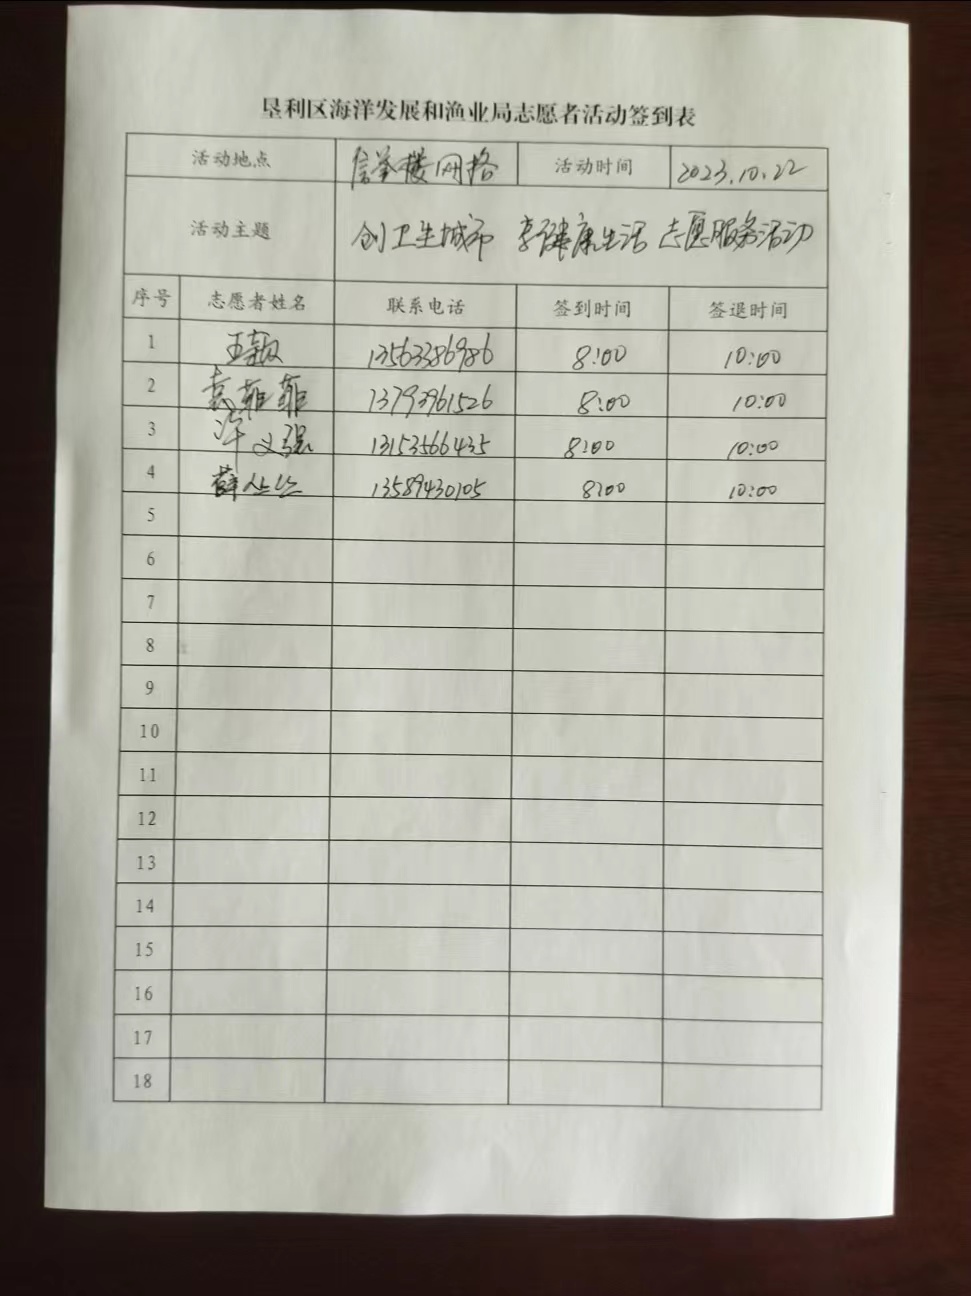 垦利区海洋发展和渔业局志愿者活动签到表
活动地点 信誉楼网格 活动时间 2023.10.22
活动主题 创卫生城市 享健康生活 志愿服务活动
序号 志愿者姓名 联系电话 签到时间 签退时间
1 王颖 13563386986 8:00 10:00
2 袁菲菲 13793961526 8:00 10:00
3 文强 13153566435 8:00 10:00
4 薛丛丛 13589430105 8:00 10:00
5
6
7
8
9
10
11
12
13
14
15
16
17
18